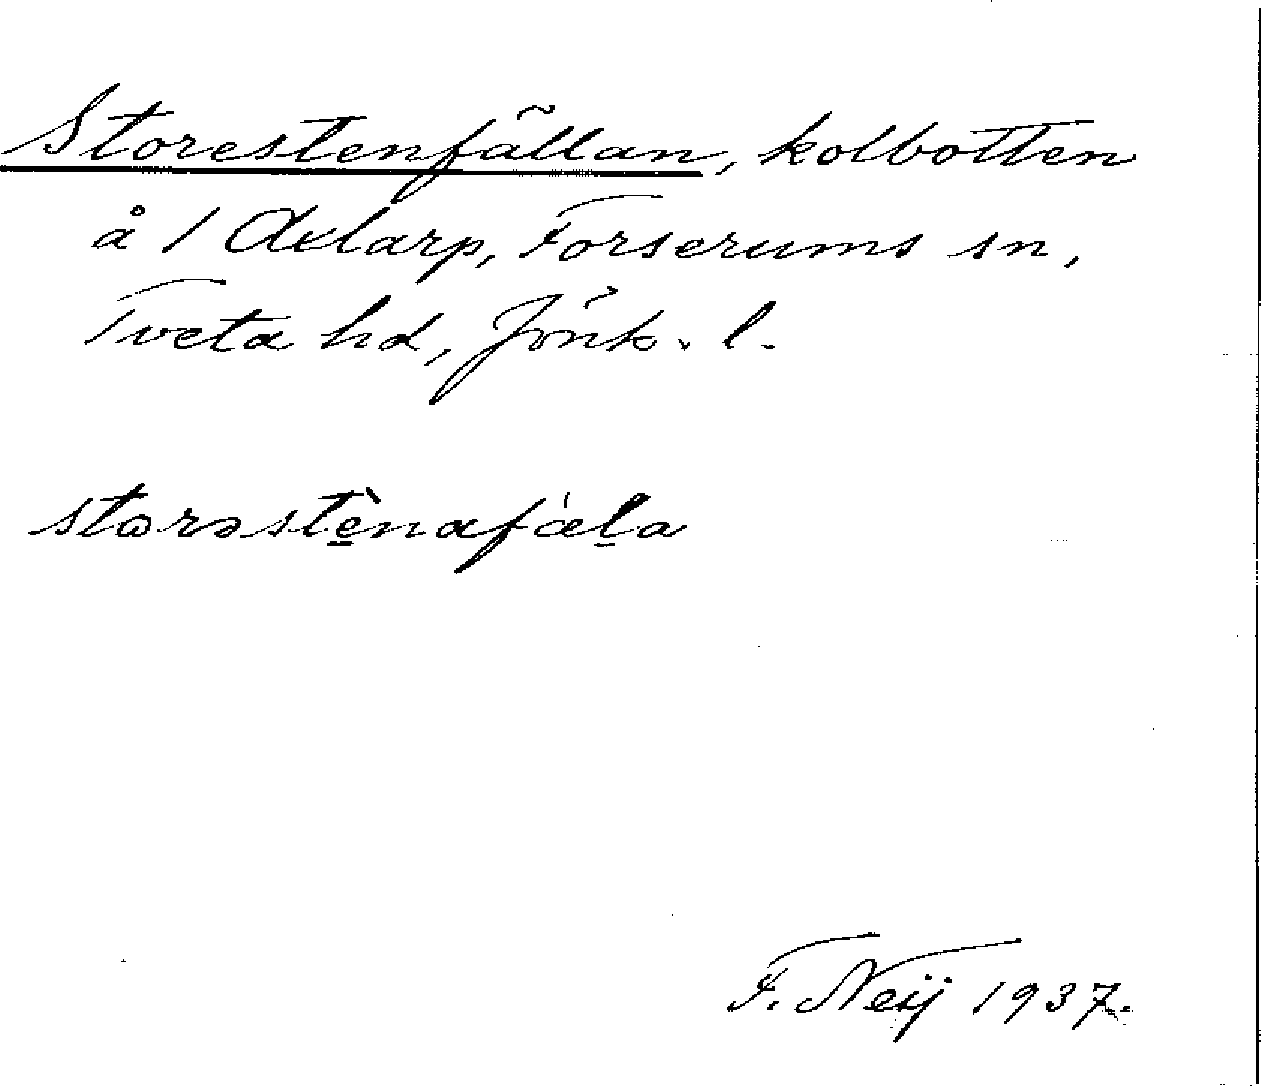 Storestenfällan, kolbotten
å 1 Axlarp, Forserums sn,
Tveta hd, Jönk. l.
storəstènafálа
F. Neij 1937.